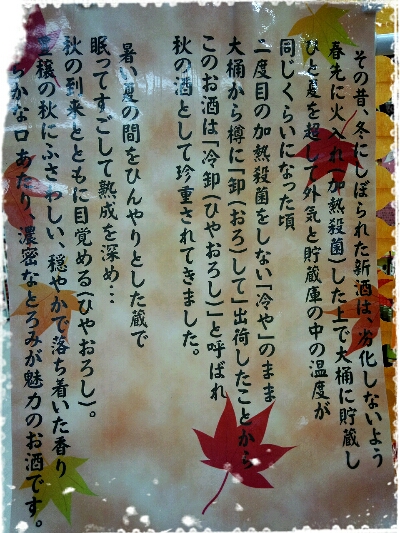 その昔、冬にしぼられた新酒は、劣化しないよう
春先に火入れ(加熱殺菌)した上で大桶に貯蔵し
ひと夏を超して外気と貯蔵庫の中の温度が
同じくらいになった頃
二度目の加熱殺菌をしない「冷や」のまま
大桶から樽に「卸(おろ)して」出荷したことから
このお酒は「冷卸(ひやおろし)」と呼ばれ
秋の酒として珍重されてきました。
暑い夏の間をひんやりとした蔵で
眠ってすごして熟成を深め…
秋の到来とともに目覚める(ひやおろし)。
豊穣の秋にふさわしい、穏やかで落ち着いた香り
らかな口あたり、濃密なとろみが魅力のお酒です。